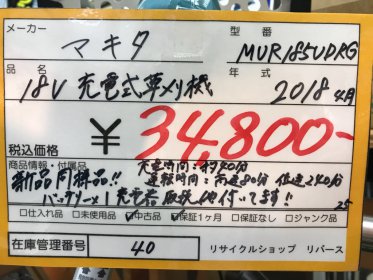 メーカー マキタ 型番 MUR185UDRG
品名 18V 充電式草刈機 年式 2018 4月
税込価格 ¥34,800-
商品情報・付属品 充電時間:約40分
新品同様品!! 運転時間:高速80分 低速240分
バッテリー×1 充電器 取説 他付います!!
□仕入れ品 □未使用品 ☑中古品 ☑保証1ヶ月 □保証なし □ジャンク品
在庫管理番号 40 リサイクルショップ リバース